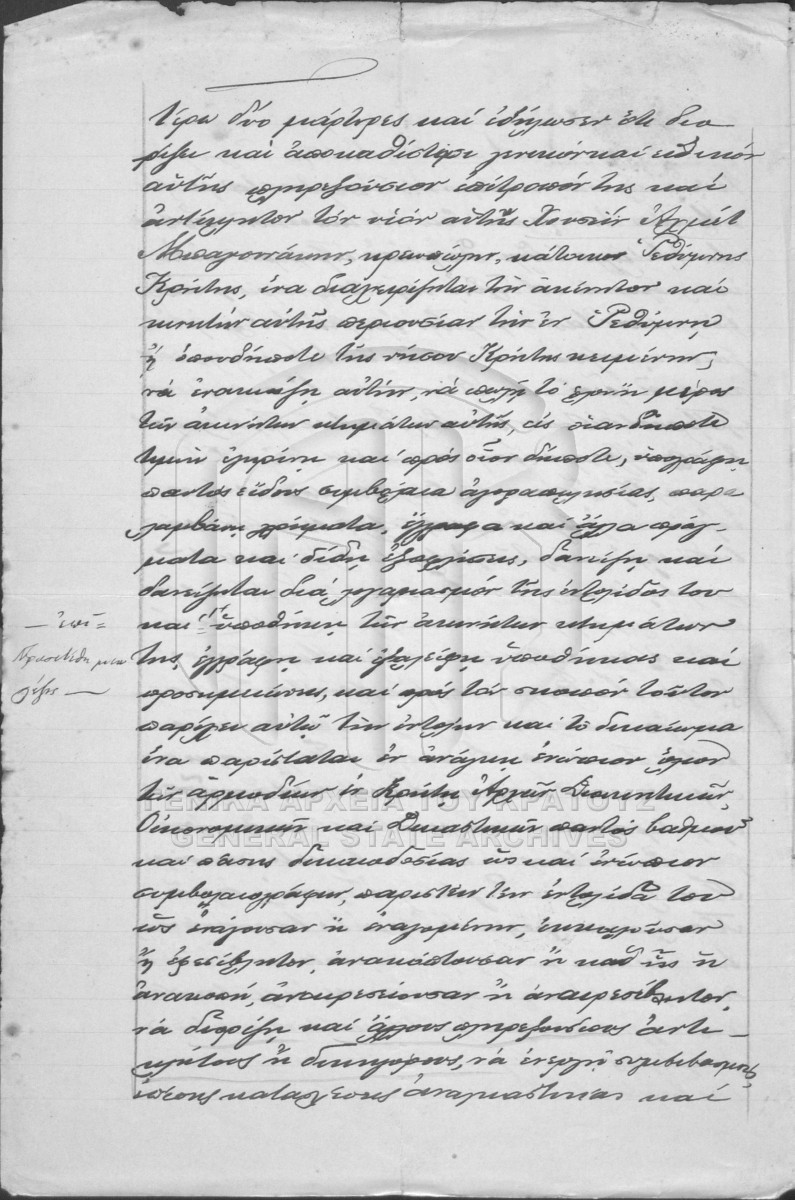 τέρω δύο μάρτυρες καί ἐδήλωσεν ὅτι διο
ρίζει καί ἀποκαθίστησι γενικόν καί εἰδικόν
αὐτῆς πληρεξούσιον ἐπίτροπόν της καί
ἀντίκλητον τόν υἱόν αὐτῆς Χουσεΐν Ἀχμέτ
κρεοπώλην, κάτοικον Ῥεθύμνης
Κρήτης, ἵνα διαχειρίζηται τήν ἀκίνητον καί
κινητήν αὐτῆς περιουσίαν τήν ἐν Ῥεθύμνῃ
ἤ ὁπουδήποτε τῆς νήσου Κρήτης κειμένην,
νά ἐνοικιάζῃ αὐτήν, νά πωλῇ τό μέρος
τῶν ἀκινήτων κτημάτων αὐτῆς, εἰς οἱανδήποτε
τιμήν ἐγκρίνῃ καί πρός οἷον δήποτε, ὑπογράφῃ
παντός εἴδους συμβόλαια ἀγοραπωλησίας, παρα
λαμβάνῃ χρήματα, ἔγγραφα καί ἄλλα πράγ-
ματα καί δίδῃ ἐξοφλήσεις, δανείζῃ καί
δανείζηται διά λογαριασμόν τῆς ἐντολίδος του
καί ὑποθήκῃ τῶν ἀκινήτων κτημάτων
της, ἐγγράφῃ καί ἐξαλείφῃ ὑποθήκας καί
προσημειώσεις, καί πρός τόν σκοπόν τοῦτον
παρέχει αὐτῷ τήν ἐντολήν καί τό δικαίωμα
ἵνα παρίσταται ἐν ἀνάγκῃ ἐνώπιον ὅλων
τῶν ἁρμοδίων ἐν Κρήτῃ Ἀρχῶν Διοικητικῶν,
Οἰκονομικῶν καί Δικαστικῶν παντός βαθμοῦ
καί πάσης δικαιοδοσίας ὡς καί ἐνώπιον
συμβολαιογράφων, παριστῶν τήν ἐντολίδα του
ὡς ἐνάγουσαν ἤ ἐναγομένην, ἐκκαλοῦσαν
ἤ ἐφεσίβλητον, ἀνακόπτουσαν ἤ καθ' ἧς ἡ
ἀνακοπή, ἀναιρεσείουσαν ἤ ἀναιρεσίβλητον,
νά διορίζῃ καί ἄλλους πληρεξουσίους ἀντι-
κλήτους ἤ δικηγόρους, νά ἐνεργῇ συμβιβασμούς,
πάσης κατασχέσεις ἀναγκαστικάς καί
— ἐπί =
Προσετέθη μία
λέξις —
ΓΕΝΙΚΑ ΑΡΧΕΙΑ ΤΟΥ ΚΡΑΤΟΥΣ
GENERAL STATE ARCHIVES